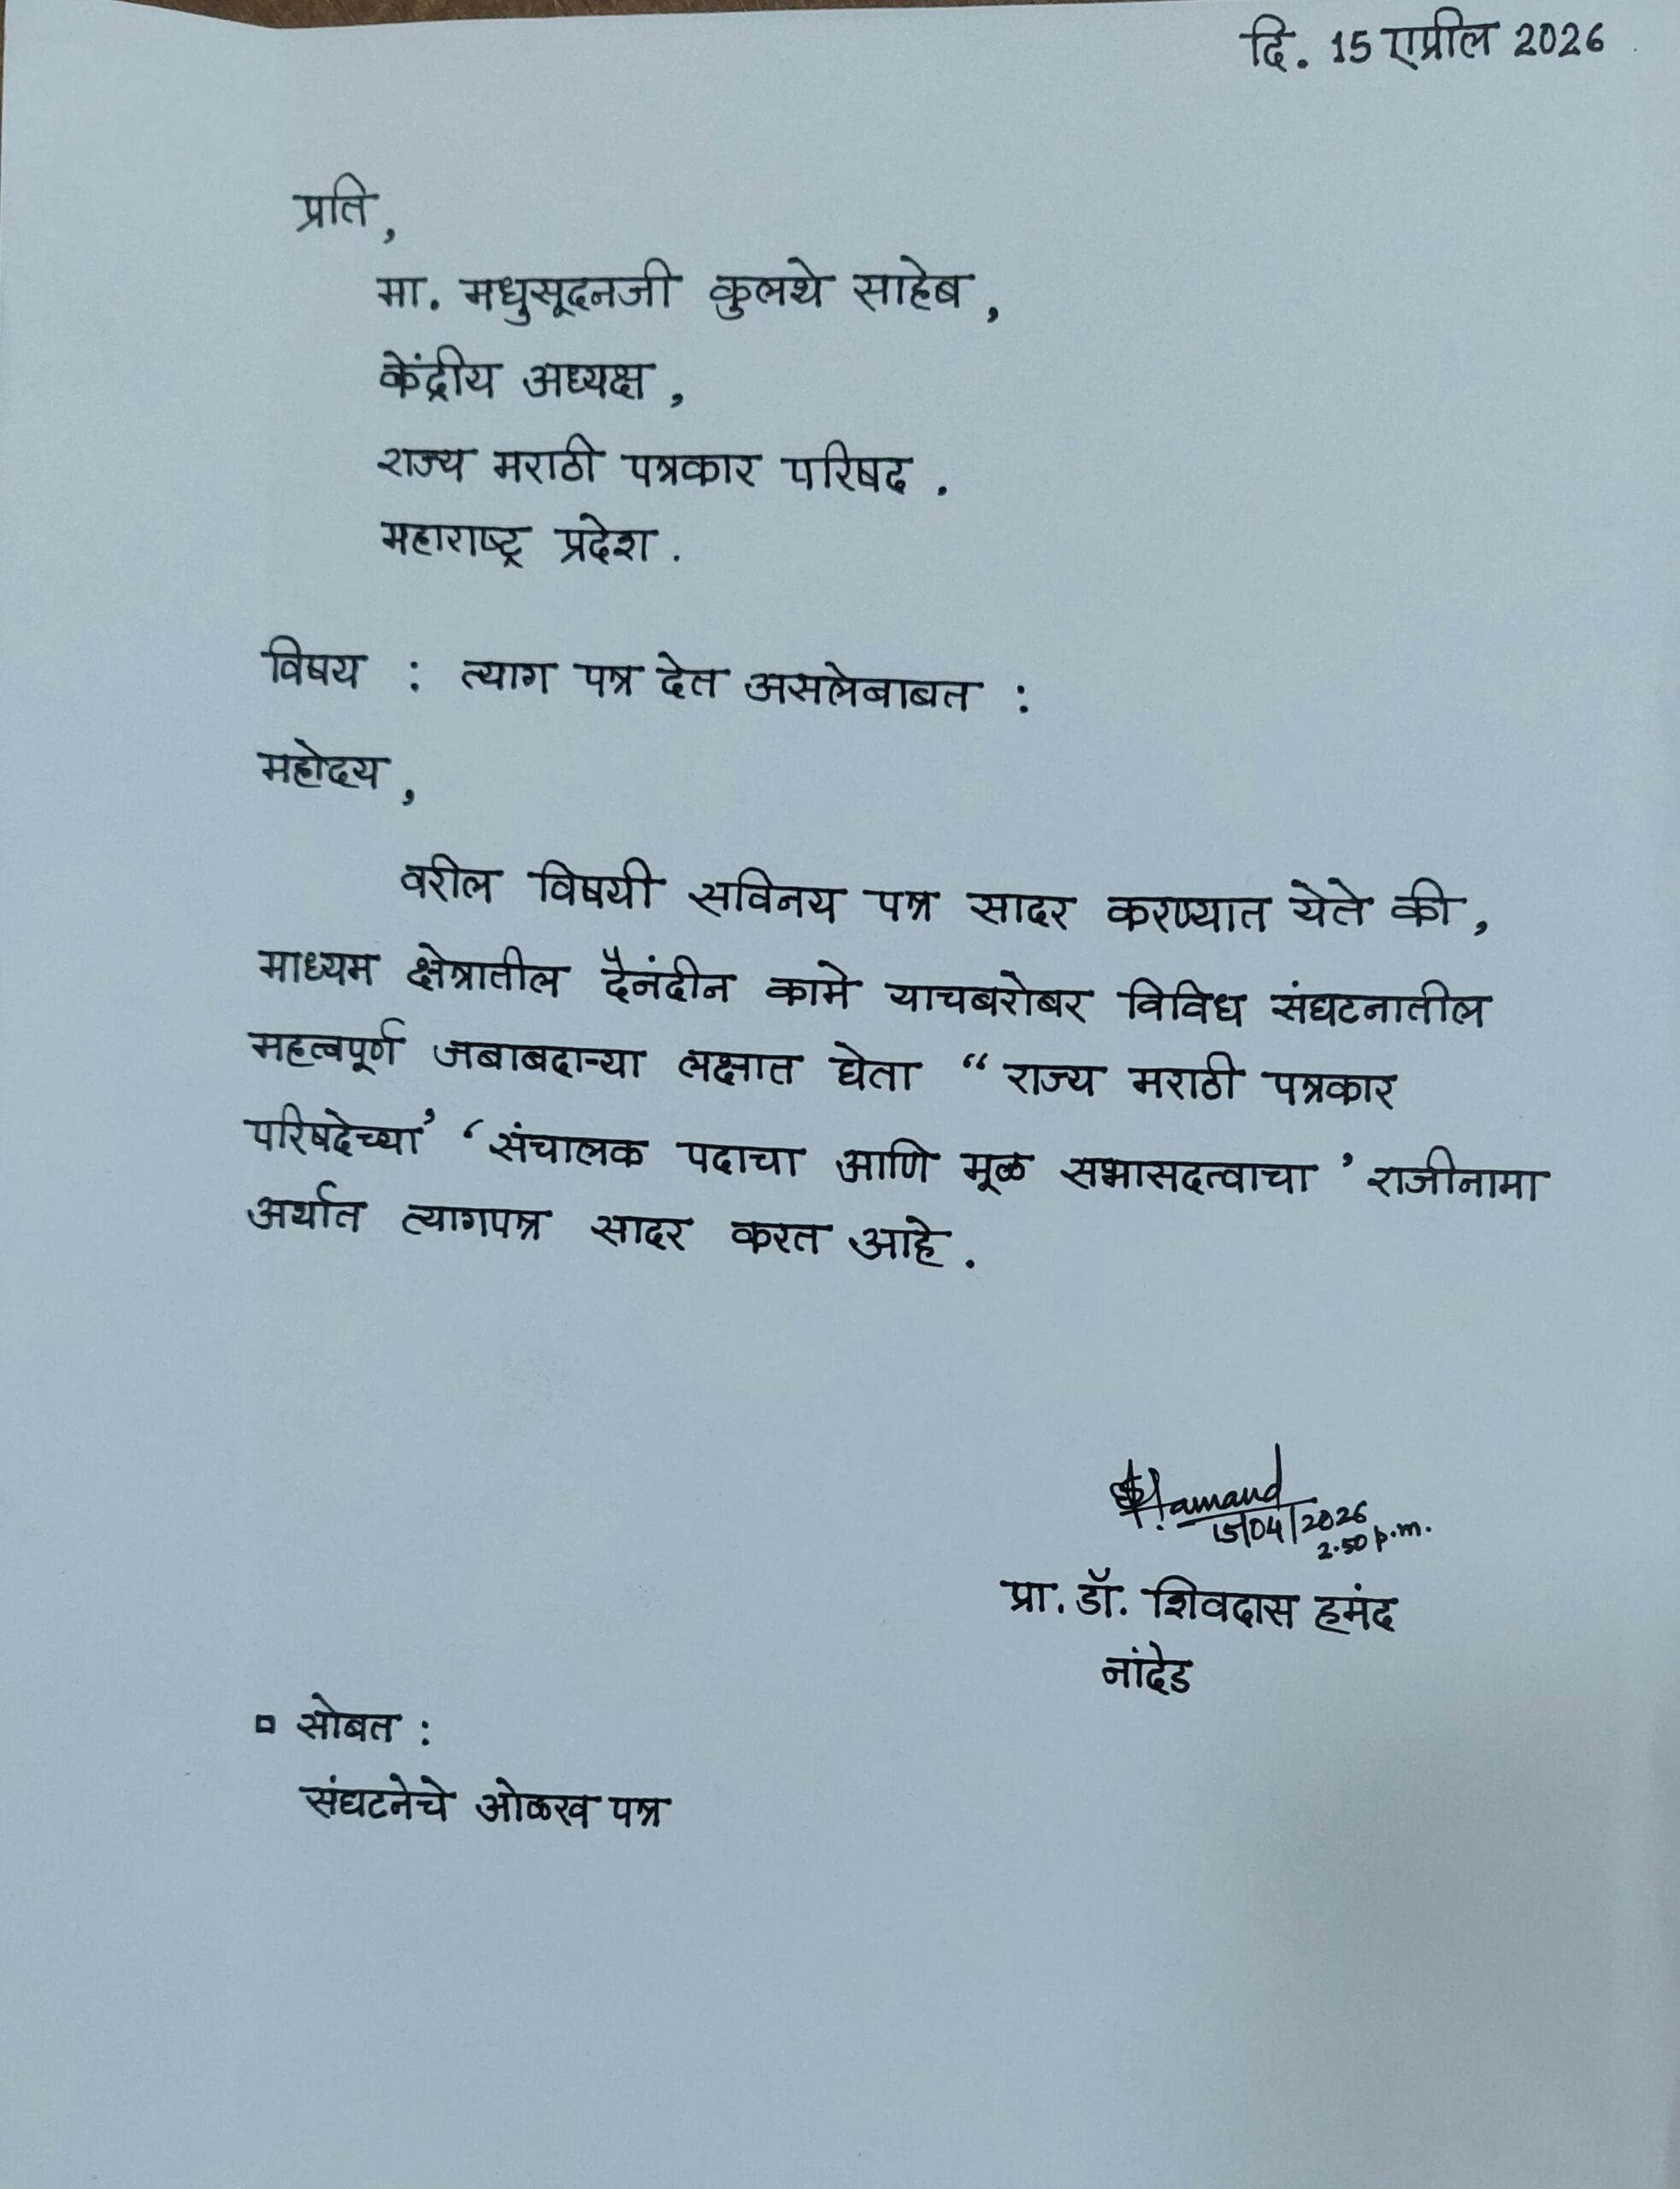 दि. 15 एप्रील 2026
प्रति,
मा. मधुसूदनजी कुलथे साहेब,
केंद्रीय अध्यक्ष,
राज्य मराठी पत्रकार परिषद.
महाराष्ट्र प्रदेश.
विषय : त्याग पत्र देत असलेबाबत :
महोदय,
वरील विषयी सविनय पत्र सादर करण्यात येते की,
माध्यम क्षेत्रातील दैनंदीन कामे याचबरोबर विविध संघटनातील
महत्वपूर्ण जबाबदाऱ्या लक्षात घेता “राज्य मराठी पत्रकार
परिषदेच्या’ ‘संचालक पदाचा आणि मूळ सभासदत्वाचा’ राजीनामा
अर्थात त्यागपत्र सादर करत आहे.
Hamand
15/04/2026
2.50 p.m.
प्रा. डॉ. शिवदास हमंद
नांदेड
सोबत :
संघटनेचे ओळख पत्र